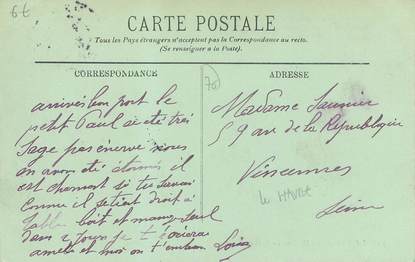 6€
CARTE POSTALE
Tous les Pays étrangers n'acceptent pas la Correspondance au recto.
(Se renseigner à la Poste).
CORRESPONDANCE
ADRESSE
70
arrivés bon port le
petit Paul a été très
sage pas énervé nous
en avons été étonnés il
est charmant si tu savais
comme il se tient droit à
table boit et mange seul
dans 2 jours je t'écrirai
amélie et moi on t'embrasse Louise
Madame Saunier
59 rue de la République
Vincennes
Seine
Le HAVRE